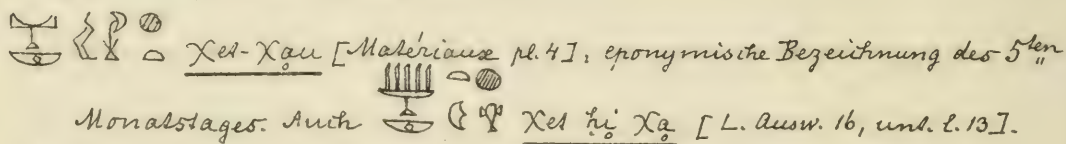 χet-χạu [Matériaux pl. 4], eponymische Bezeichnung des 5ten
Monatstages. Auch χet ḥi̥ χạ [L. Ausw. 16, unt. l. 13].